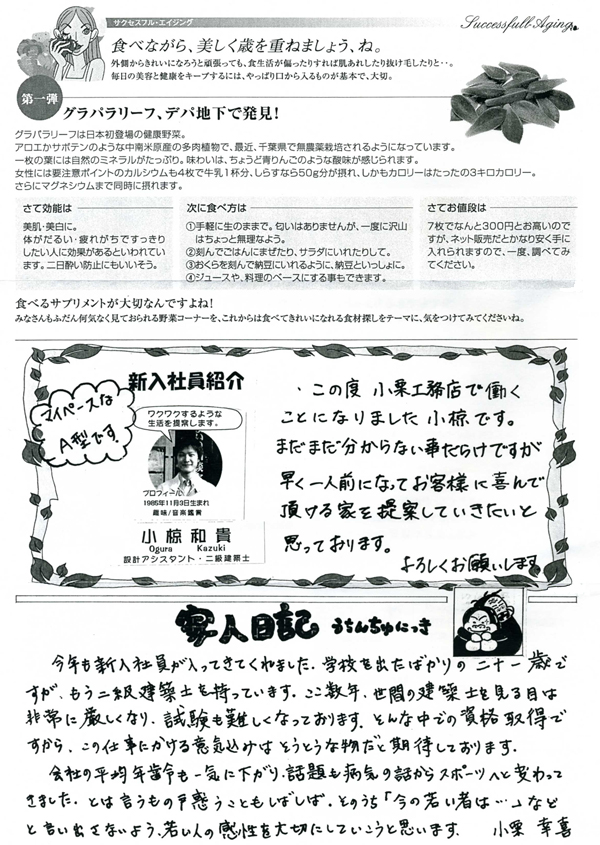 サクセスフル・エイジング
Successfull Aging
食べながら、美しく歳を重ねましょう、ね。
外側からきれいになろうと頑張っても、食生活が偏ったりすれば肌あれしたり抜け毛したりと・・。
毎日の美容と健康をキープするには、やっぱり口から入るものが基本で、大切。
第一弾
グラパラリーフ、デパ地下で発見!
グラパラリーフは日本初登場の健康野菜。
アロエかサボテンのような中南米原産の多肉植物で、最近、千葉県で無農薬栽培されるようになっています。
一枚の葉には自然のミネラルがたっぷり。味わいは、ちょうど青りんごのような酸味が感じられます。
女性には要注意ポイントのカルシウムも4枚で牛乳1杯分、しらすなら50g分が摂れ、しかもカロリーはたったの3キロカロリー。
さらにマグネシウムまで同時に摂れます。
さて効能は
美肌・美白に。
体がだるい・疲れがちですっきり
したい人に効果があるといわれてい
ます。二日酔い防止にもいいそう。
次に食べ方は
①手軽に生のままで。匂いはありませんが、一度に沢山
はちょっと無理なよう。
②刻んでごはんにまぜたり、サラダにいれたりして。
③おくらを刻んで納豆にいれるように、納豆といっしょに。
④ジュースや、料理のベースにする事もできます。
さてお値段は
7枚でなんと300円とお高いので
すが、ネット販売だとかなり安く手に
入れられますので、一度、調べてみ
てください。
食べるサプリメントが大切なんですよね!
みなさんもふだん何気なく見ておられる野菜コーナーを、これからは食べてきれいになれる食材探しをテーマに、気をつけてみてくださいね。
新入社員紹介
マイペースな
A型です
ワクワクするような
生活を提案します。
プロフィール
1985年11月3日生まれ
趣味/音楽鑑賞
小椋和貴
Ogura Kazuki
設計アシスタント・二級建築士
・この度 小栗工務店で働く
ことになりました小椋です。
まだまだ分からない事だらけですが
早く一人前になってお客様に喜んで
頂ける家を提案していきたいと
思っております。
よろしくお願いします。
家人日記 うちんちゅにっき
今年も新入社員が入ってきてくれました。学校を出たばかりの二十一歳で
すが、もう二級建築士を持っています。ここ数年、世間の建築士を見る目は
非常に厳しくなり、試験も難しくなっております。そんな中での資格取得で
すから、この仕事にかける意気込みはそうとうな物だと期待しております。
会社の平均年齢も一気に下がり、話題も病気の話からスポーツへと変わって
きました。とは言うもの戸惑うこともしばしば。そのうち「今の若い者は…」など
と言い出さないよう、若い人の感性を大切にしていこうと思います。 小栗 幸喜